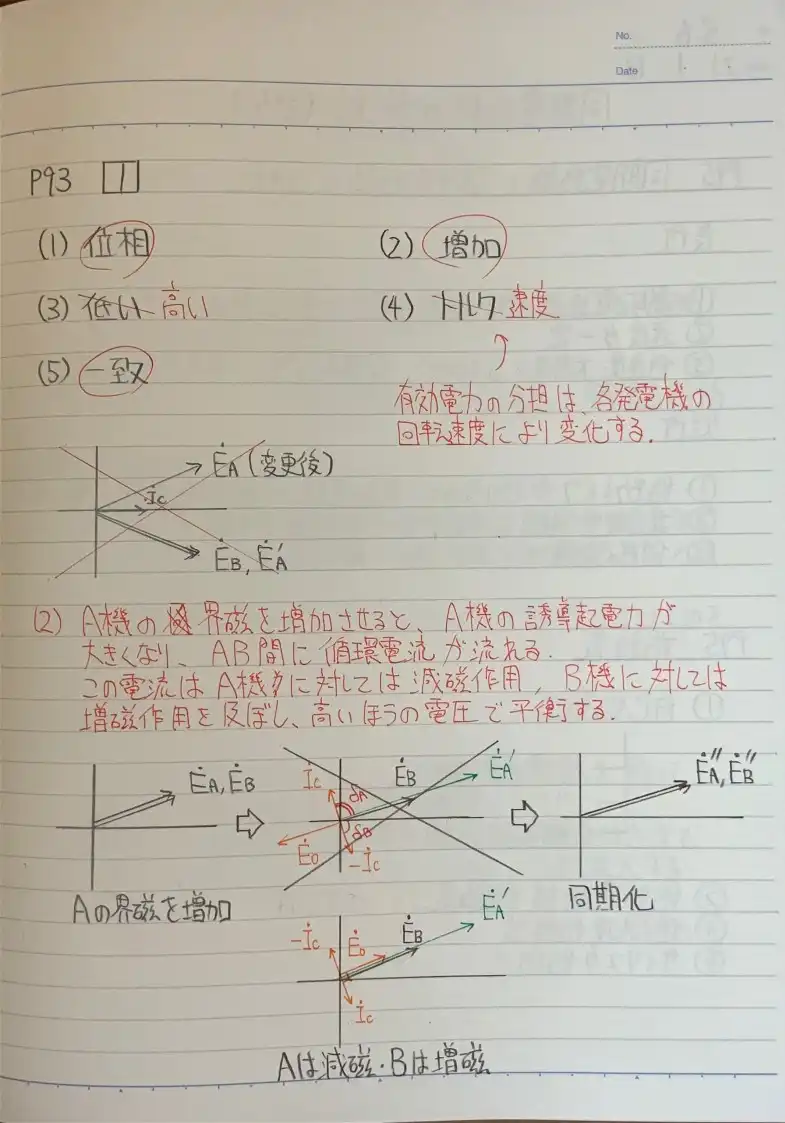 No.
Date
P93 1
(1) 位相 (2) 増加
(3) 低い 高い (4) トルク 速度
(5) 一致
有効電力の分担は、各発電機の
回転速度により変化する.
ĖA (変更後)
İc
ĖB, ĖA′
(2) A機の 界磁を増加させると、A機の誘導起電力が
大きくなり、AB間に循環電流が流れる.
この電流はA機に対しては減磁作用, B機に対しては
増磁作用を及ぼし、高いほうの電圧で平衡する.
ĖA, ĖB
İc δA ĖB ĖA′
δB
Ė0 -İc
ĖA″, ĖB″
Aの界磁を増加
同期化
-İc Ė0 ĖB ĖA′
İc
Aは減磁・Bは増磁